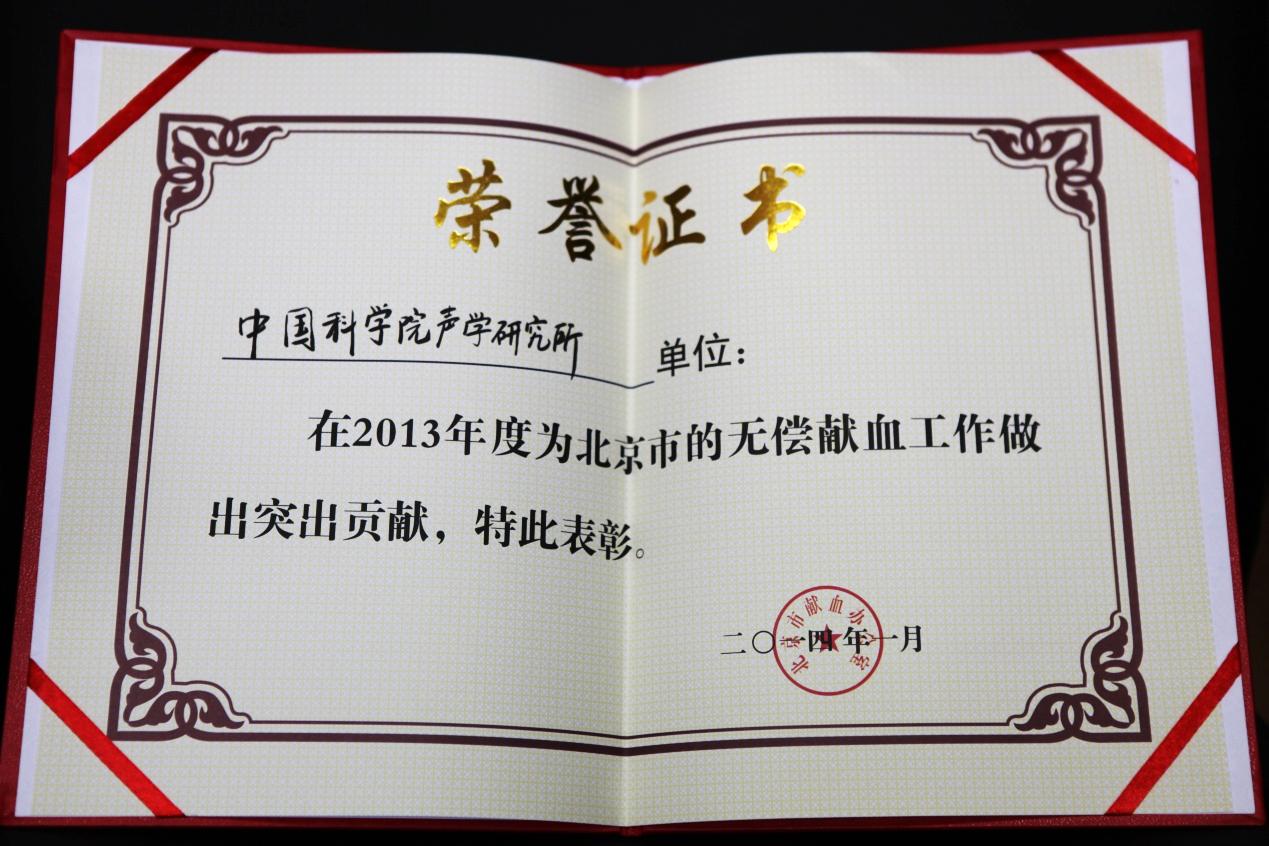 荣誉证书
中国科学院声学研究所 单位：
在2013年度为北京市的无偿献血工作做
出突出贡献，特此表彰。
二〇一四年一月
北京市献血办公室